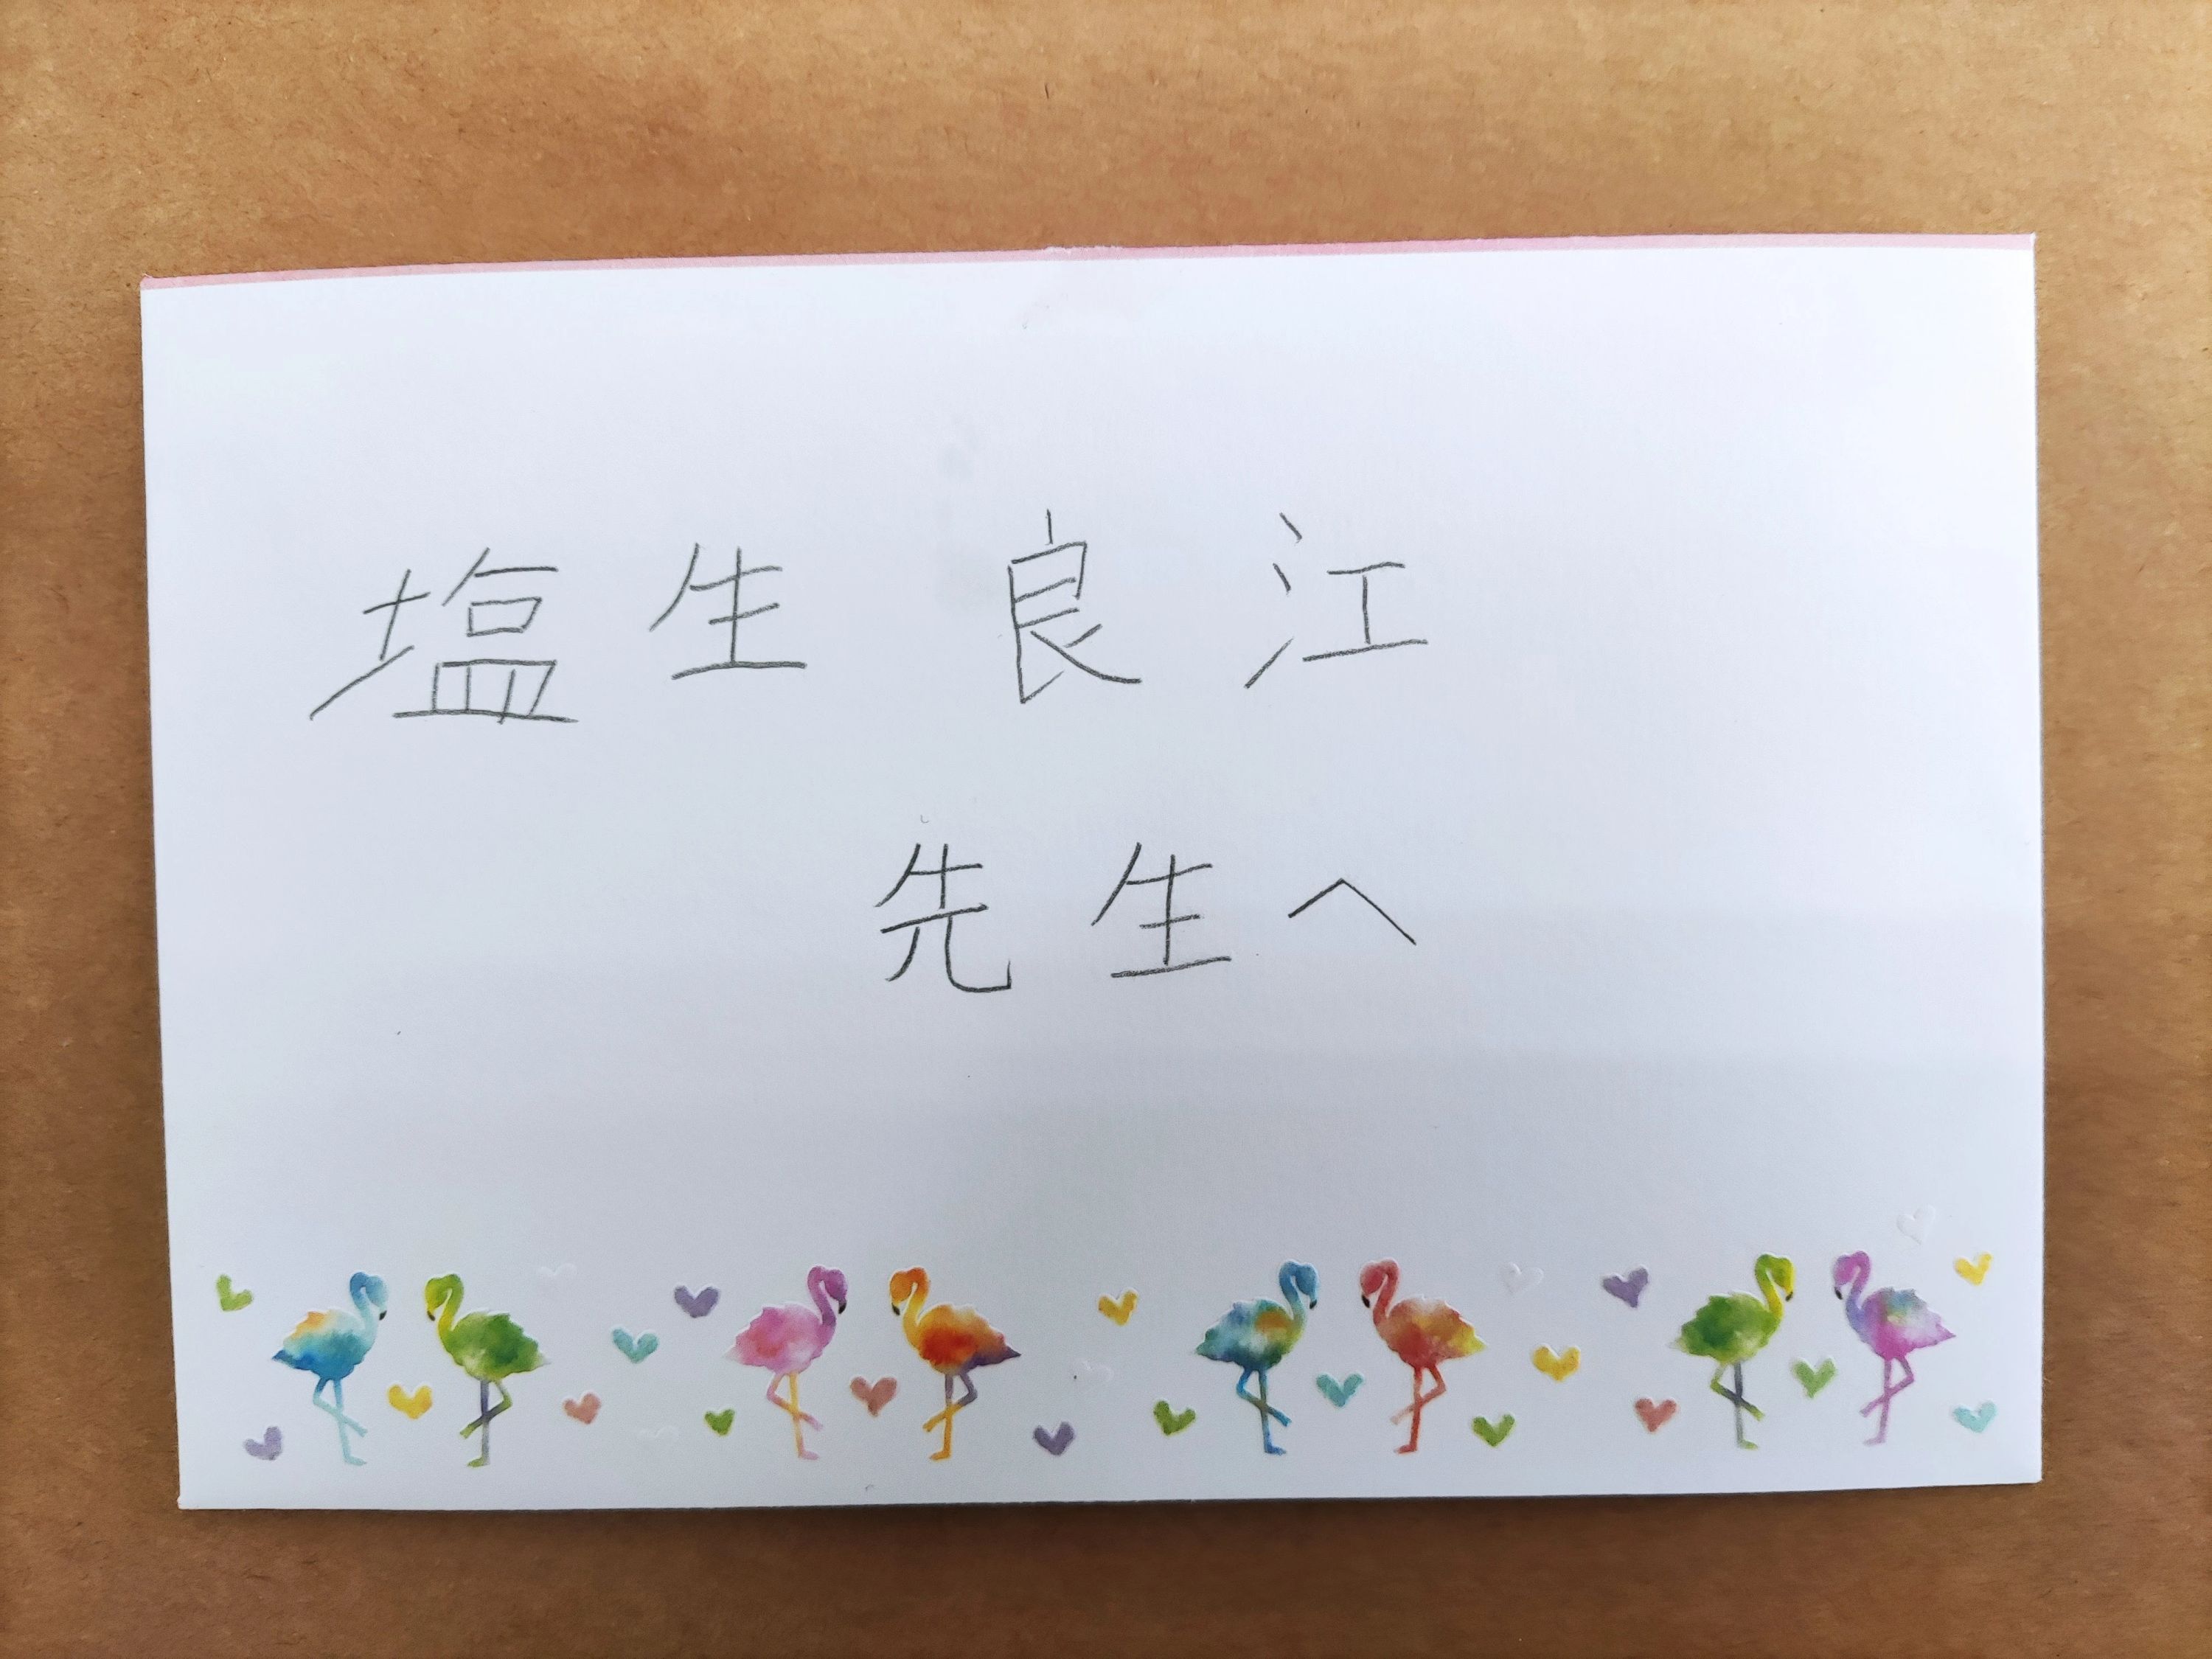 塩生 良江
先生へ